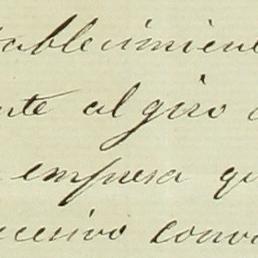 tablecimient
nte al giro
empresa qu
cesivo conv